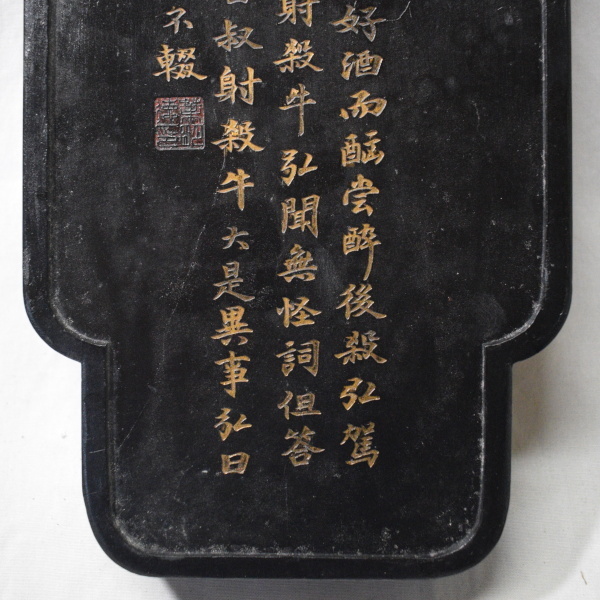 好酒而酗尝醉後殺弘駕
射殺牛弘聞無怪詞但答
叔射殺牛大是異事弘曰
不輟